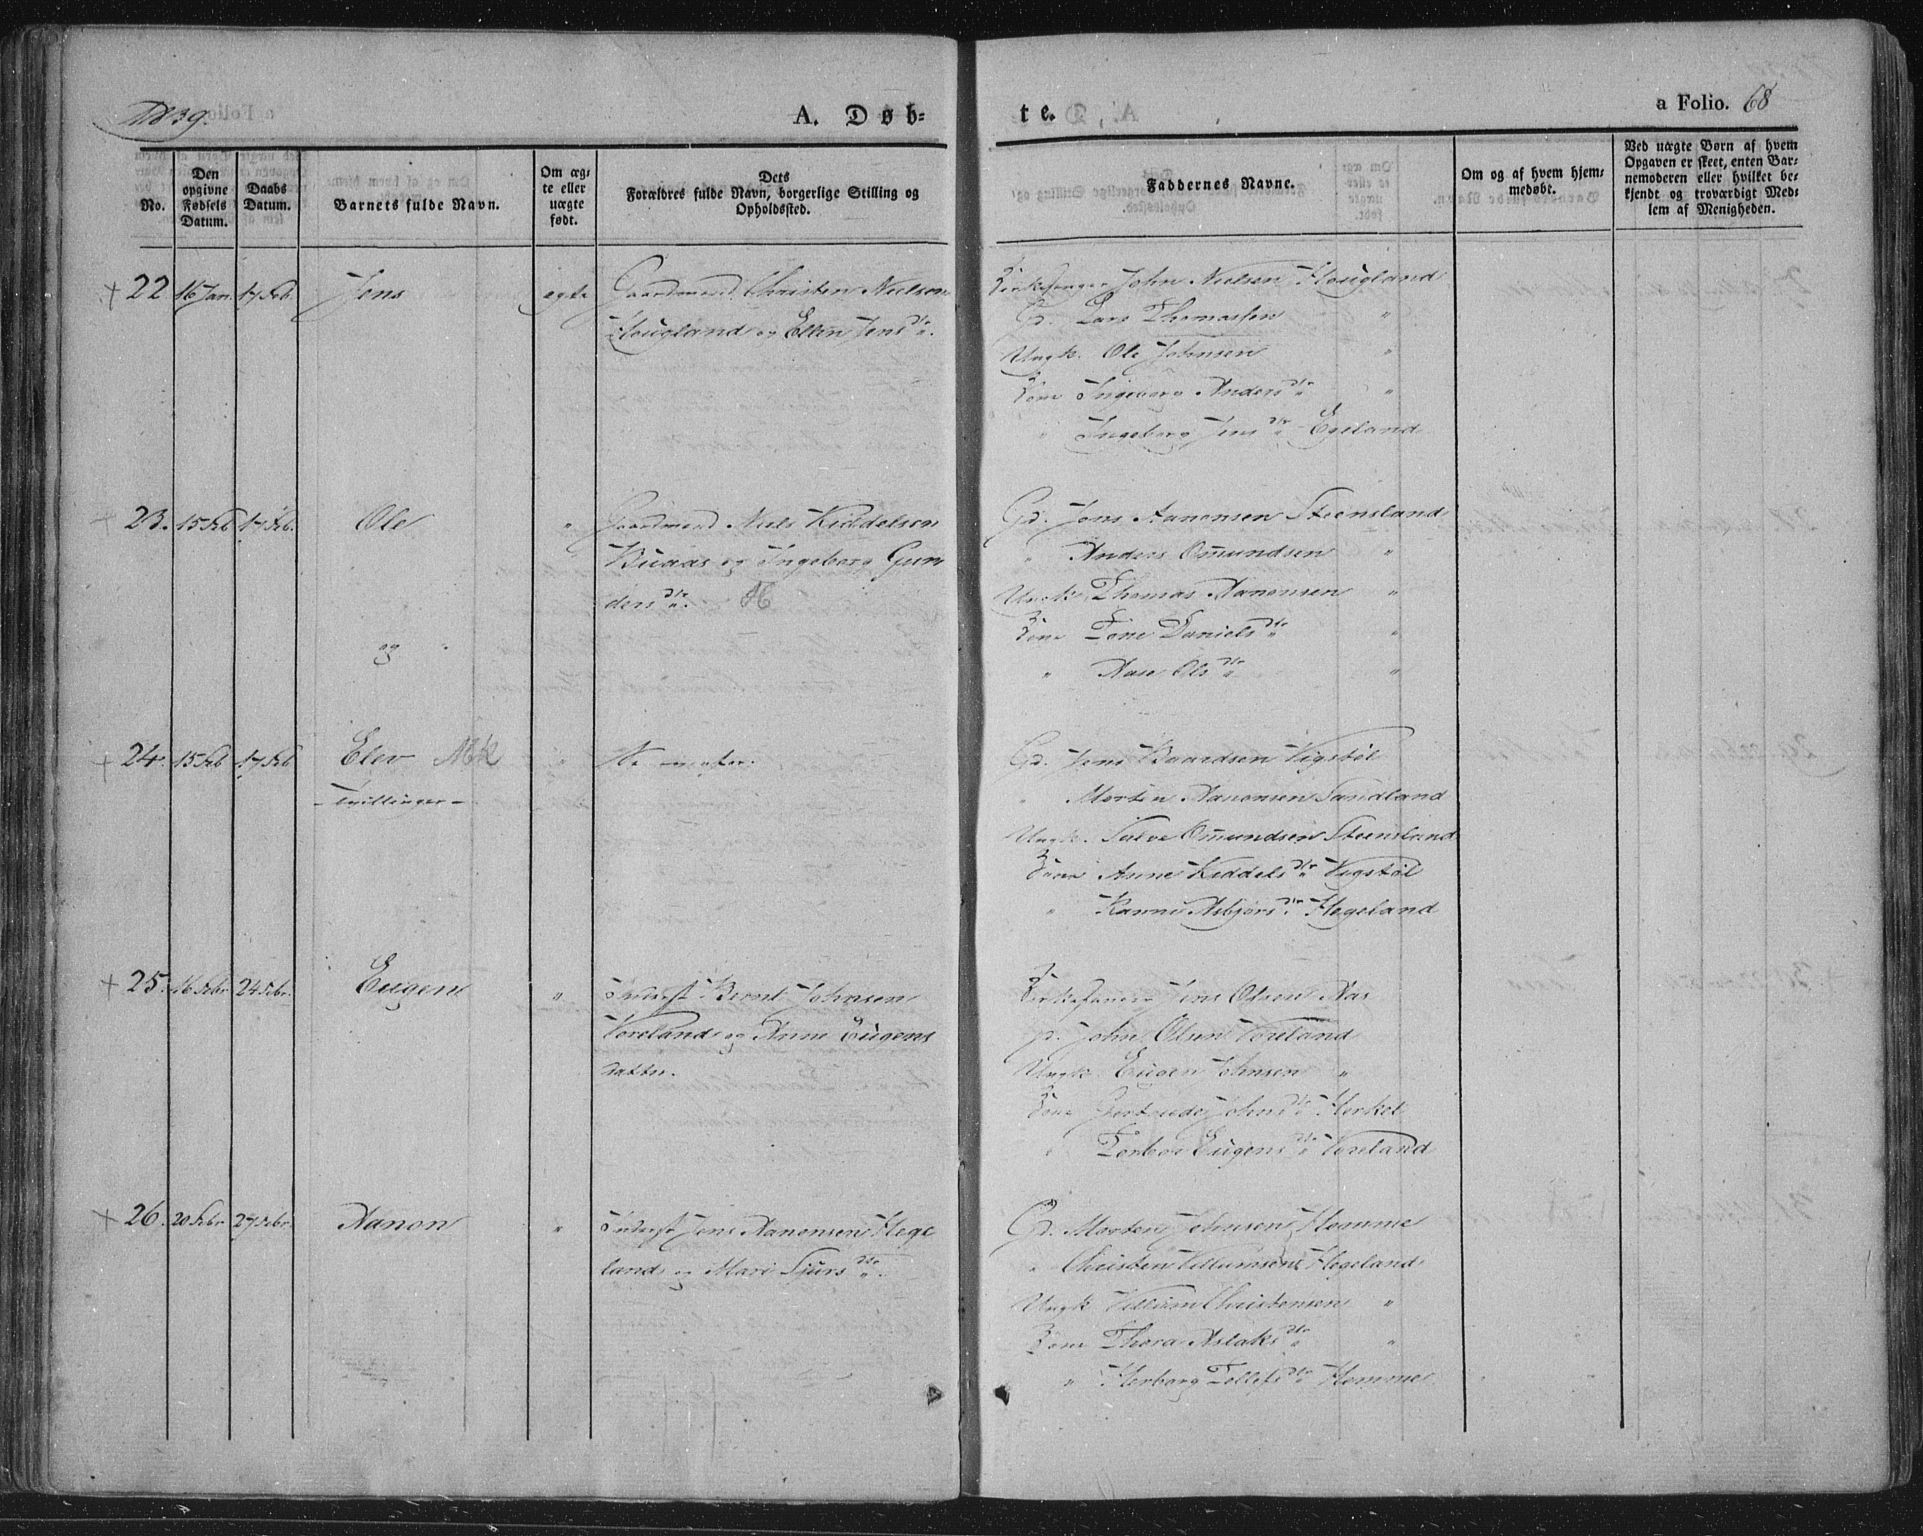 1839.
A. Døb-
te.
a Folio. 68
No.
Den opgivne Fødsels Datum.
Daabs Datum.
Barnets fulde Navn.
Om ægte eller uægte født.
Dets Forældres fulde Navn, borgerlige Stilling og Opholdssted.
Faddernes Navne.
Om og af hvem hjemmedøbt.
Ved uægte Børn af hvem Opgaven er skeet, enten Barnemoderen eller hvilket bekjendt og troværdigt Medlem af Menigheden.
+ 22 16 Jan. 17 Feb. Jens egte Gaardmand Christen Nielsen
Hougland og Ellen Jens dtr.
Kirkesanger John Nielsen Hougland
Gd. Lars Thomassen "
Ungk. Ole Johnsen "
Kone Ingeborg Anders dtr "
" Ingeborg Jens dtr Egeland
+ 23. 15 Feb 17 Feb. Ole " Gaardmand Niels Kiddelsen
Buaas og Ingeborg Gun
ders dtr.
og
Gd. Jens Aanonsen Steensland
" Anders Omundsen "
Ungk. Thomas Aanonsen "
Kone Tone Daniels dtr "
" Aase Ols dtr "
+ 24. 15 Feb 17 Feb Elev "
- Tvillinger -
Gd. Jens Baardsen Vigstøl
" Morten Aanonsen Sandland
Ungk. Salve Omundsen Steensland
Kone Anne Kiddels dtr Vigstøl
" Karen Asbjørs dtr Hegeland
+ 25. 16 Febr. 24 Febr. Eugen " Inderst Bernt Johnsen
Voreland og Anne Eugens
datter.
Kirkesanger Jens Olsen Aas
Gd. John Olsen Voreland
Ungk Eugen Johnsen "
Kone Gertrude Johns dtr Herkel
" Torbor Eugens dtr Voreland
+ 26. 20 Febr. 27 Febr. Aanon " Inderst Jens Aanonsen Hege
land og Mari Sjurs dtr.
Gd. Morten Johnsen Homme
" Christen Villumsen Hegeland
Ungk Villum Christensen "
Kone Thora Aslaks dtr "
" Herborg Tollefs dtr Homme